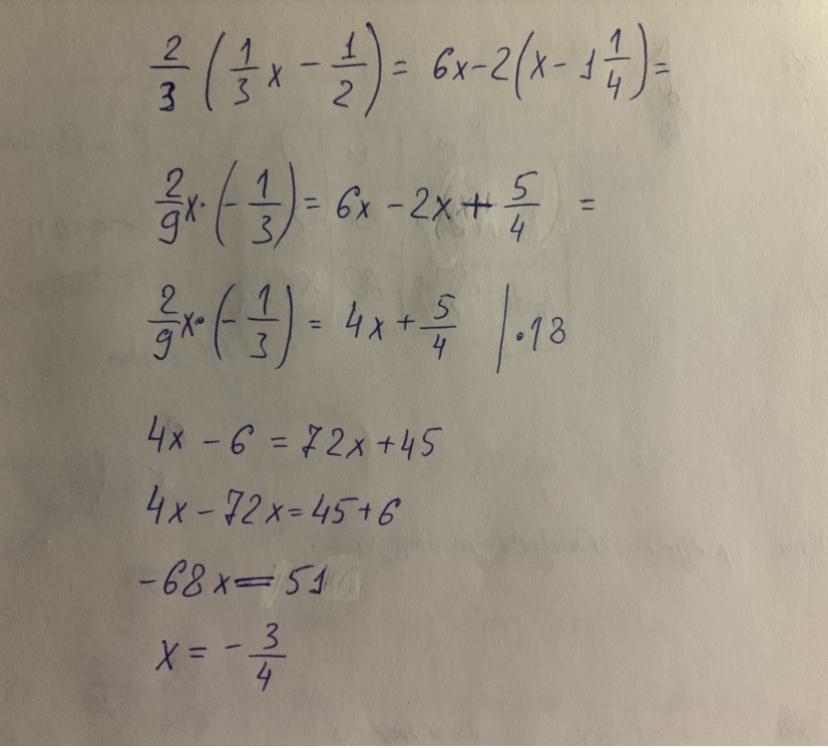 2/3 (1/3 x - 1/2) = 6x - 2(x - 1 1/4) =
2/9 x · (-1/3) = 6x - 2x + 5/4 =
2/9 x · (-1/3) = 4x + 5/4 | · 18
4x - 6 = 72x + 45
4x - 72x = 45 + 6
-68x = 51
x = -3/4